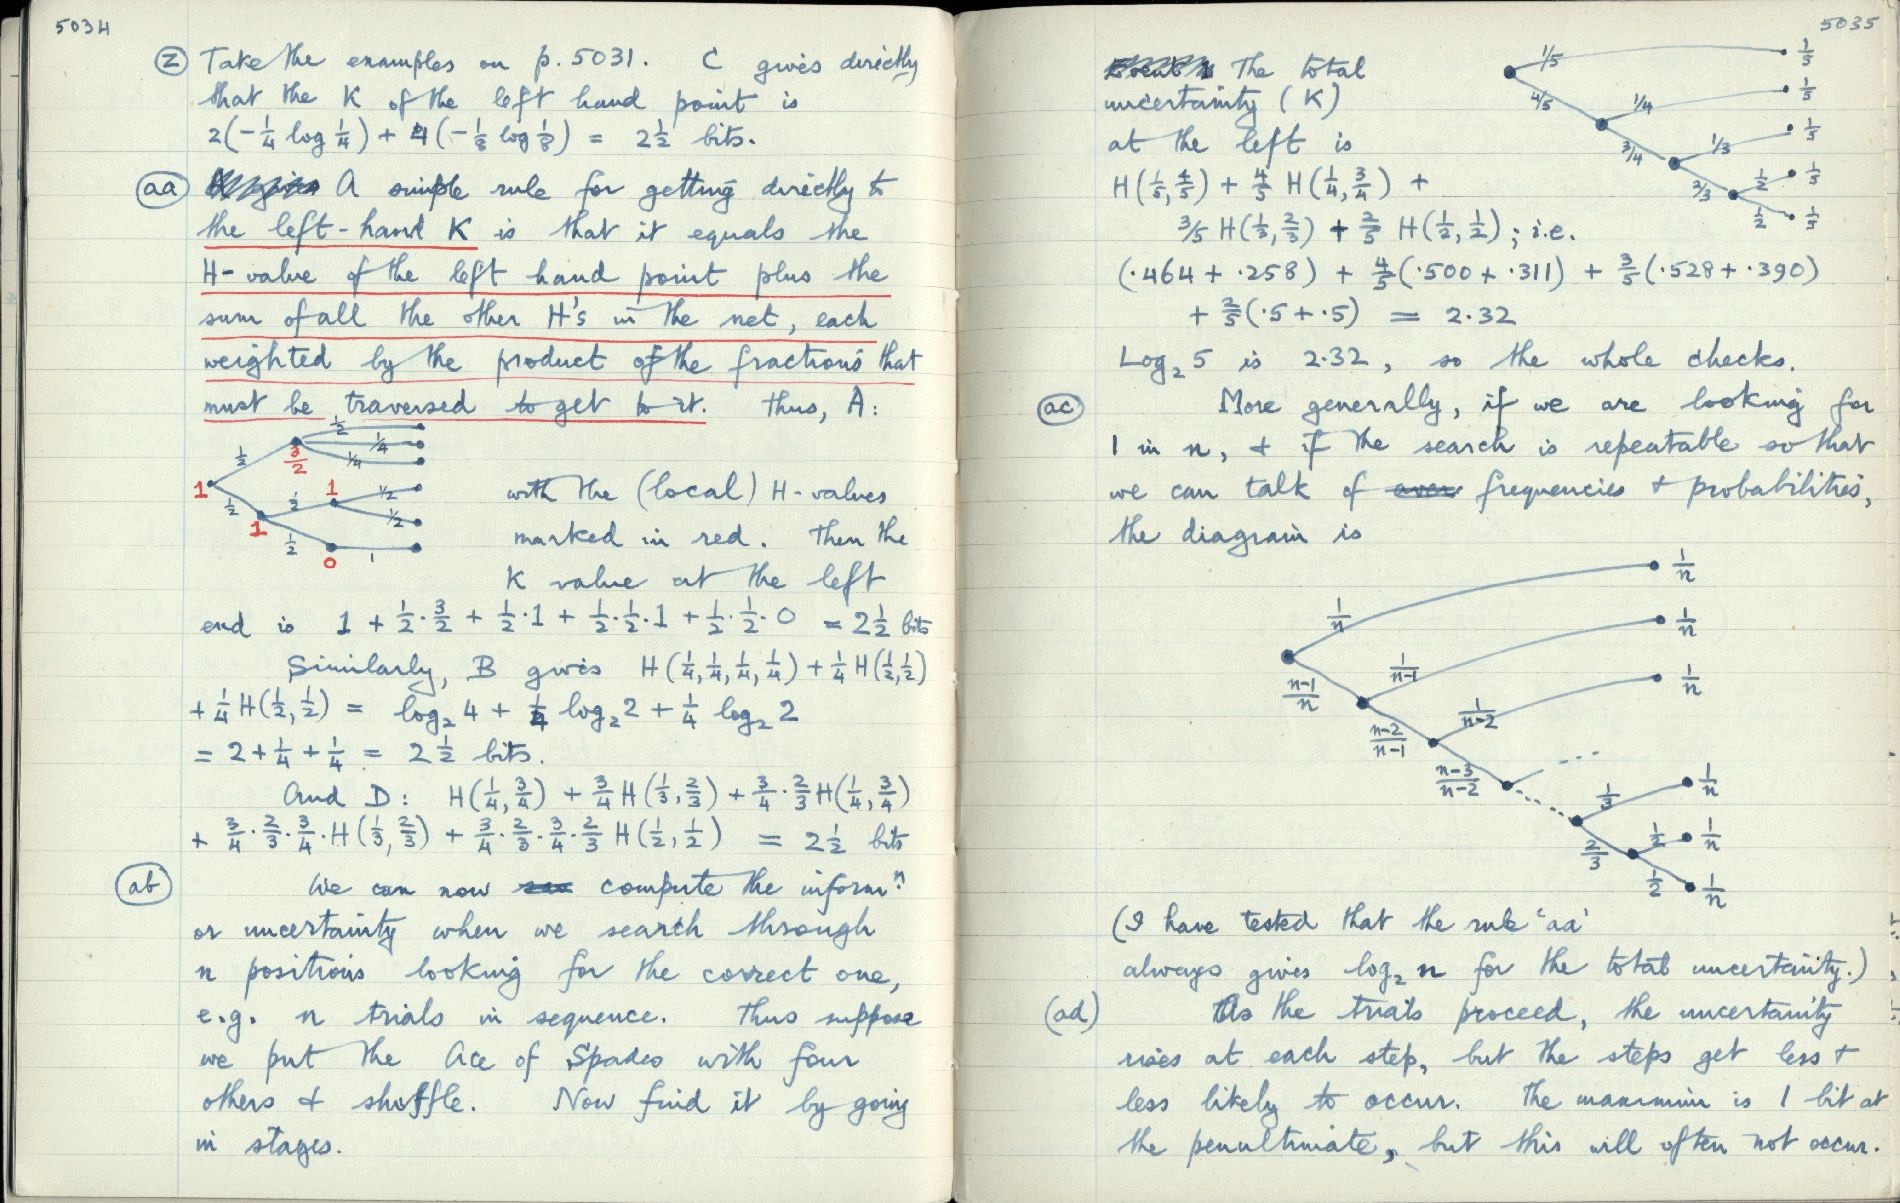 5034
(z) Take the examples on p. 5031. C gives directly
that the K of the left hand point is
2(-1/4 log 1/4) + 4(-1/8 log 1/8) = 2 1/2 bits.
(aa) A simple rule for getting directly to
the left-hand K is that it equals the
H-value of the left hand point plus the
sum of all the other H's in the net, each
weighted by the product of the fractions that
must be traversed to get to it. Thus, A:
1/2 1/2 3/2 1/4 1/4
1 1/2 1/2 1 1/2 1/2
1 1/2 0 1
with the (local) H-values
marked in red. Then the
K value at the left
end is 1 + 1/2·3/2 + 1/2·1 + 1/2·1/2·1 + 1/2·1/2·0 = 2 1/2 bits
Similarly, B gives H(1/4,1/4,1/4,1/4) + 1/4 H(1/2,1/2)
+ 1/4 H(1/2,1/2) = log₂ 4 + 1/4 log₂ 2 + 1/4 log₂ 2
= 2 + 1/4 + 1/4 = 2 1/2 bits.
And D: H(1/4,3/4) + 3/4 H(1/3,2/3) + 3/4·2/3 H(1/4,3/4)
+ 3/4·2/3·3/4·H(1/3,2/3) + 3/4·2/3·3/4·2/3 H(1/2,1/2) = 2 1/2 bits
(ab) We can now compute the informⁿ.
or uncertainty when we search through
n positions looking for the correct one,
e.g. n trials in sequence. Thus suppose
we put the Ace of Spades with four
others & shuffle. Now find it by going
in stages.
5035
The total
uncertainty (K)
at the left is
H(1/5,4/5) + 4/5 H(1/4,3/4) +
3/5 H(1/3,2/3) + 2/5 H(1/2,1/2); i.e.
1/5 1/5
4/5 1/4 1/5
3/4 1/3 1/5
2/3 1/2 1/5
1/2 1/5
(·464 + ·258) + 4/5(·500 + ·311) + 3/5(·528 + ·390)
+ 2/5(·5 + ·5) = 2·32
Log₂ 5 is 2·32, so the whole checks.
(ac) More generally, if we are looking for
1 in n, & if the search is repeatable so that
we can talk of over frequencies & probabilities,
the diagram is
1/n 1/n
n-1/n 1/n-1 1/n
n-2/n-1 1/n-2 1/n
n-3/n-2
1/3 1/n
2/3 1/2 1/n
1/2 1/n
(I have tested that the rule 'aa'
always gives log₂ n for the total uncertainty.)
(ad) As the trials proceed, the uncertainty
rises at each step, but the steps get less &
less likely to occur. The maximum is 1 bit at
the penultimate, but this will often not occur.